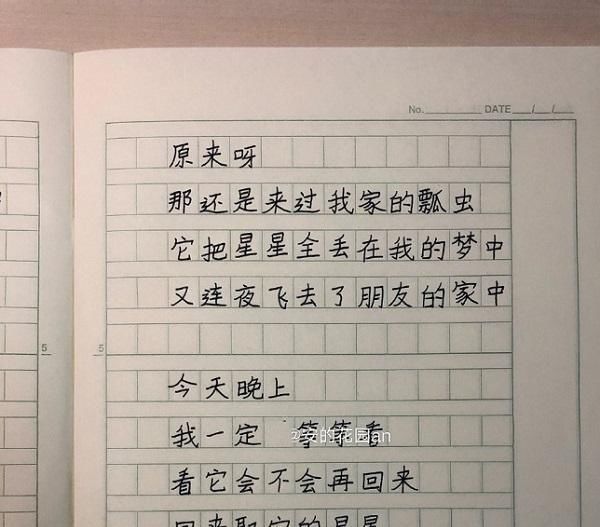 No. DATE / /
原来呀
那还是来过我家的瓢虫
它把星星全丢在我的梦中
又连夜飞去了朋友的家中
5 5
今天晚上
我一定 等等
的花园an
看它会不会再回来
回来取它的星星